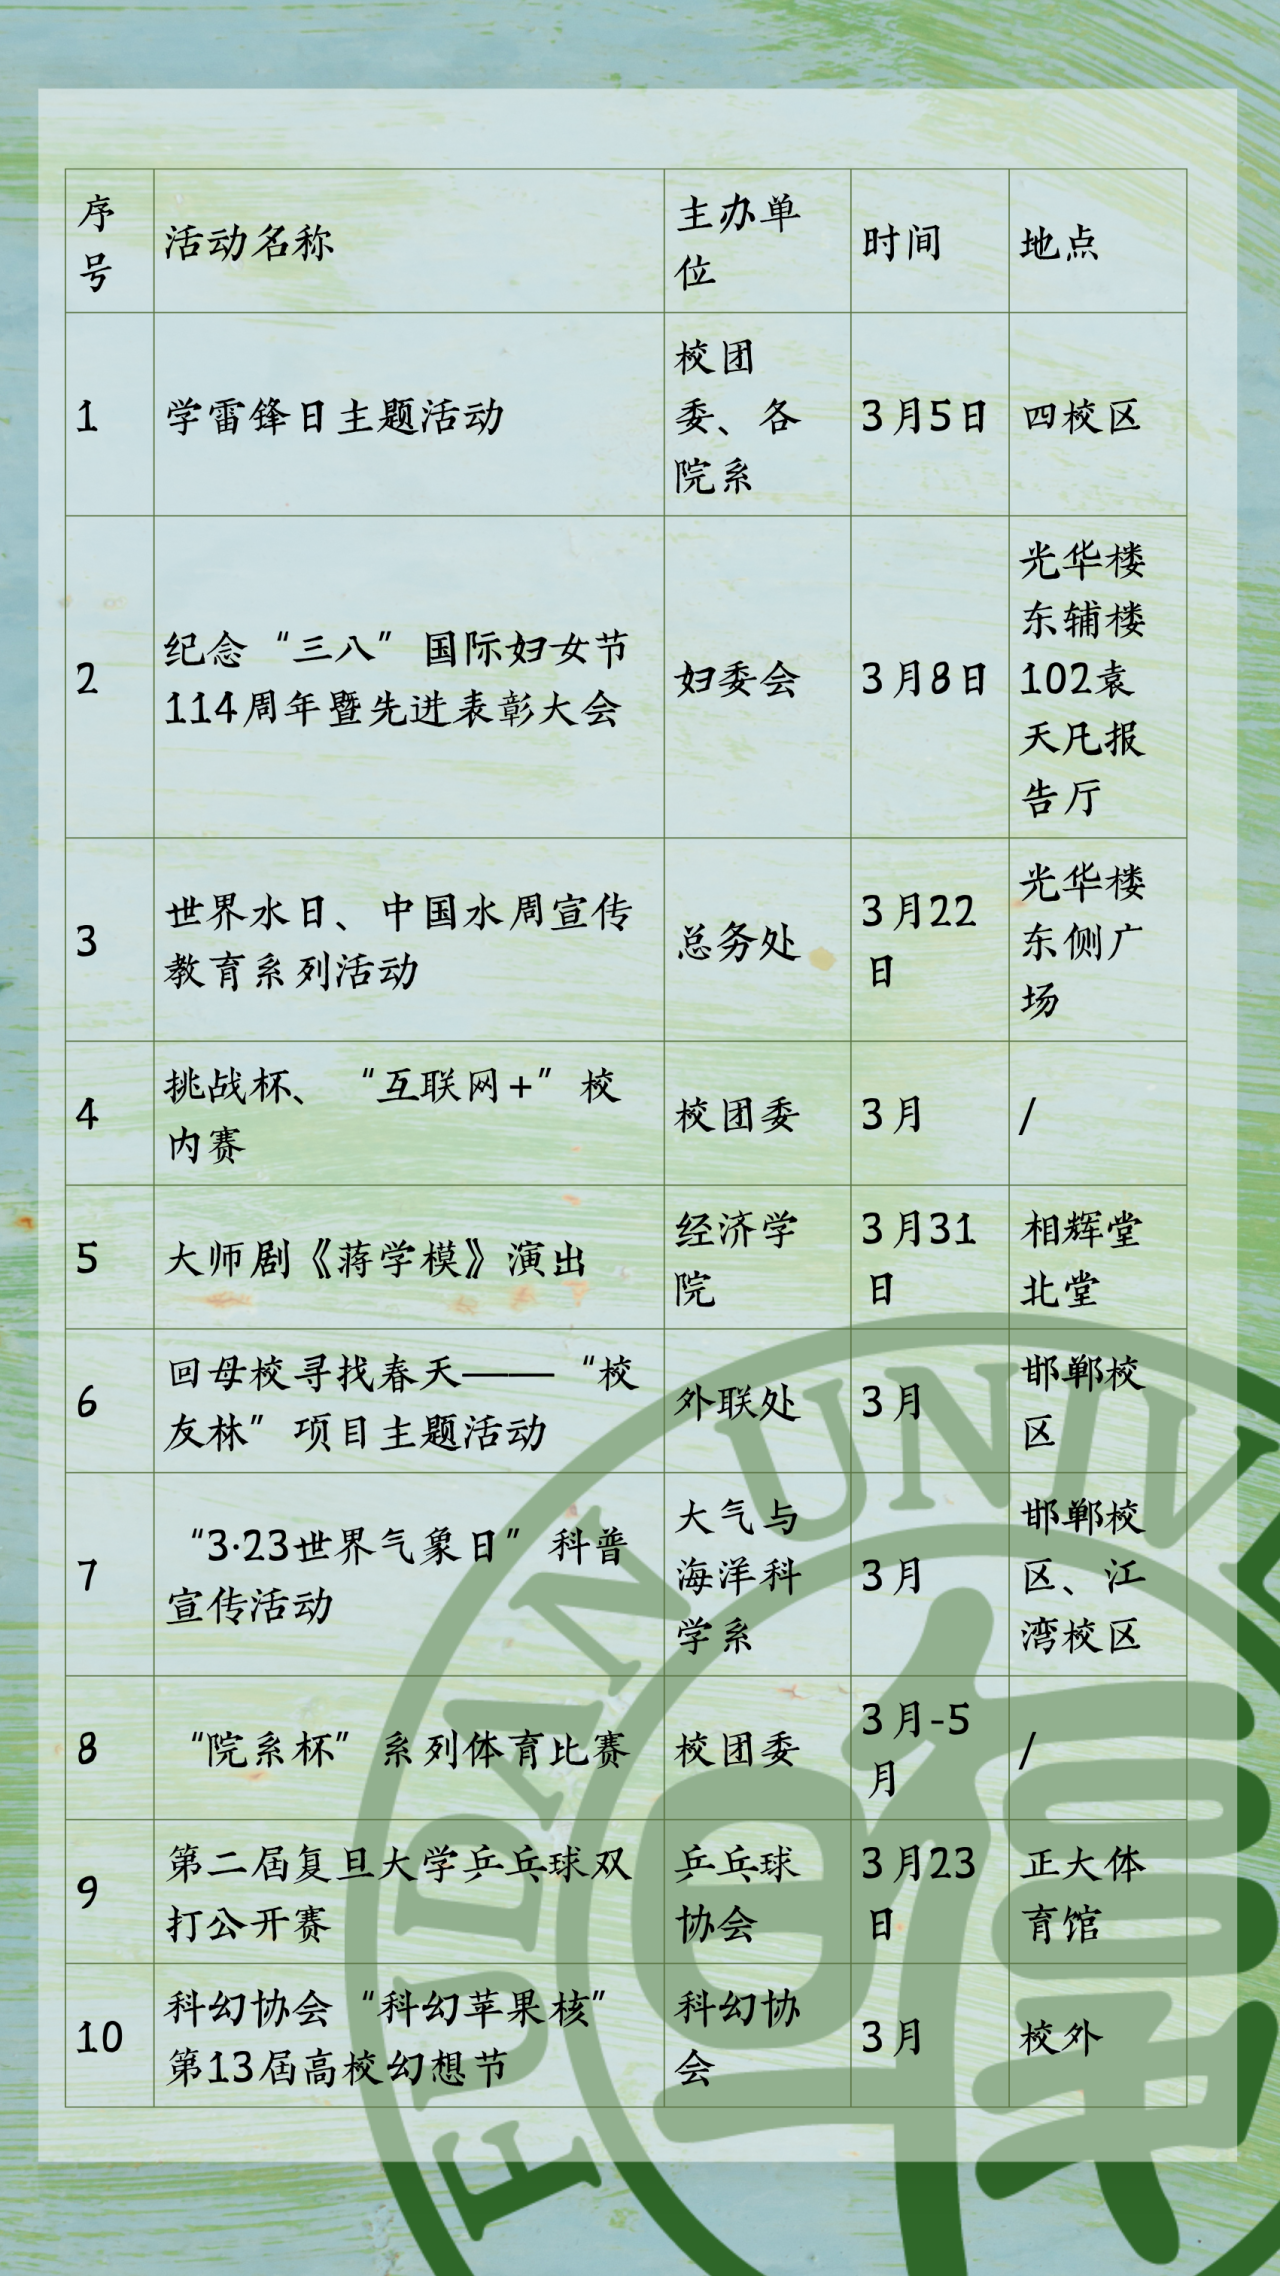 序号
活动名称
主办单位
时间
地点
1
学雷锋日主题活动
校团
委、各
院系
3月5日
四校区
2
纪念“三八”国际妇女节
114周年暨先进表彰大会
妇委会
3月8日
光华楼
东辅楼
102袁
天凡报
告厅
3
世界水日、中国水周宣传
教育系列活动
总务处
3月22
日
光华楼
东侧广
场
4
挑战杯、“互联网+”校
内赛
校团委
3月
/
5
大师剧《蒋学模》演出
经济学
院
3月31
日
相辉堂
北堂
6
回母校寻找春天——“校
友林”项目主题活动
外联处
3月
邯郸校
区
7
“3·23世界气象日”科普
宣传活动
大气与
海洋科
学系
3月
邯郸校
区、江
湾校区
8
“院系杯”系列体育比赛
校团委
3月-5
月
/
9
第二届复旦大学乒乓球双
打公开赛
乒乓球
协会
3月23
日
正大体
育馆
10
科幻协会“科幻苹果核”
第13届高校幻想节
科幻协
会
3月
校外
FUDAN UNIV